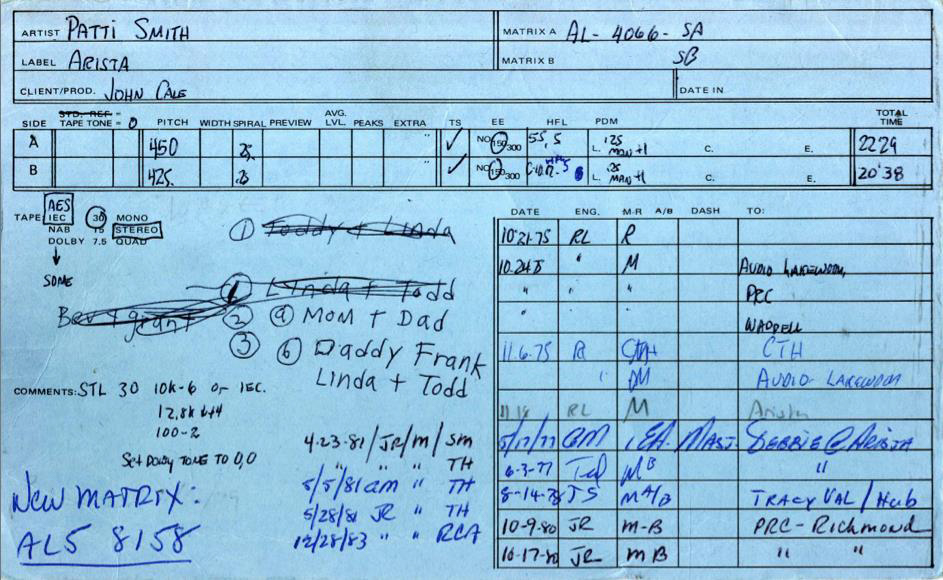 ARTIST PATTI SMITH MATRIX A AL-4066-SA
LABEL ARISTA MATRIX B SB
CLIENT/PROD. JOHN CALE DATE IN
SIDE STD. REF = TAPE TONE = 0 PITCH WIDTH SPIRAL PREVIEW AVG. LVL. PEAKS EXTRA TS EE HFL PDM TOTAL TIME
A 450 25. " ✓ NO 150 300 55, 5 L. .125 MAN +1 C. E. 2229
B 425. .25 " ✓ NO 150 300 L. .25 MAN +1 C. E. 20'38
TAPE: AES
IEC 30 MONO
NAB 15 STEREO
DOLBY 7.5 QUAD
SOME
① Toddy + Linda
① Lynda + Todd
Bev + grant ② ⓐ MOM + Dad
③ ⓑ Daddy Frank
Linda + Todd
COMMENTS: STL 30 10K-6 on IEC.
12.8K
100-2
Set DOLBY TONE TO 0,0
NEW MATRIX:
AL5 8158
4-23-81/JR/M/SM
" " " TH
5/5/81 am " TH
5/28/81 JR " TH
12/28/83 " " RCA
DATE ENG. M-R A/B DASH TO:
10-21-75 RL R
10-24-75 " M AUDIO LAKEWOOD,
" " " PRC
" " WADDELL
11-6-75 CTH
" AUDIO LAKEWOOD
11-18 RL M Arista
5/17/77 GM MAST. DEBBIE @ ARISTA
6-3-77 Ted MB "
8-14-78 JS M A/B TRACY VAL / Hub
10-9-80 JR M-B PRC-Richmond
10-17-80 JR M B " "